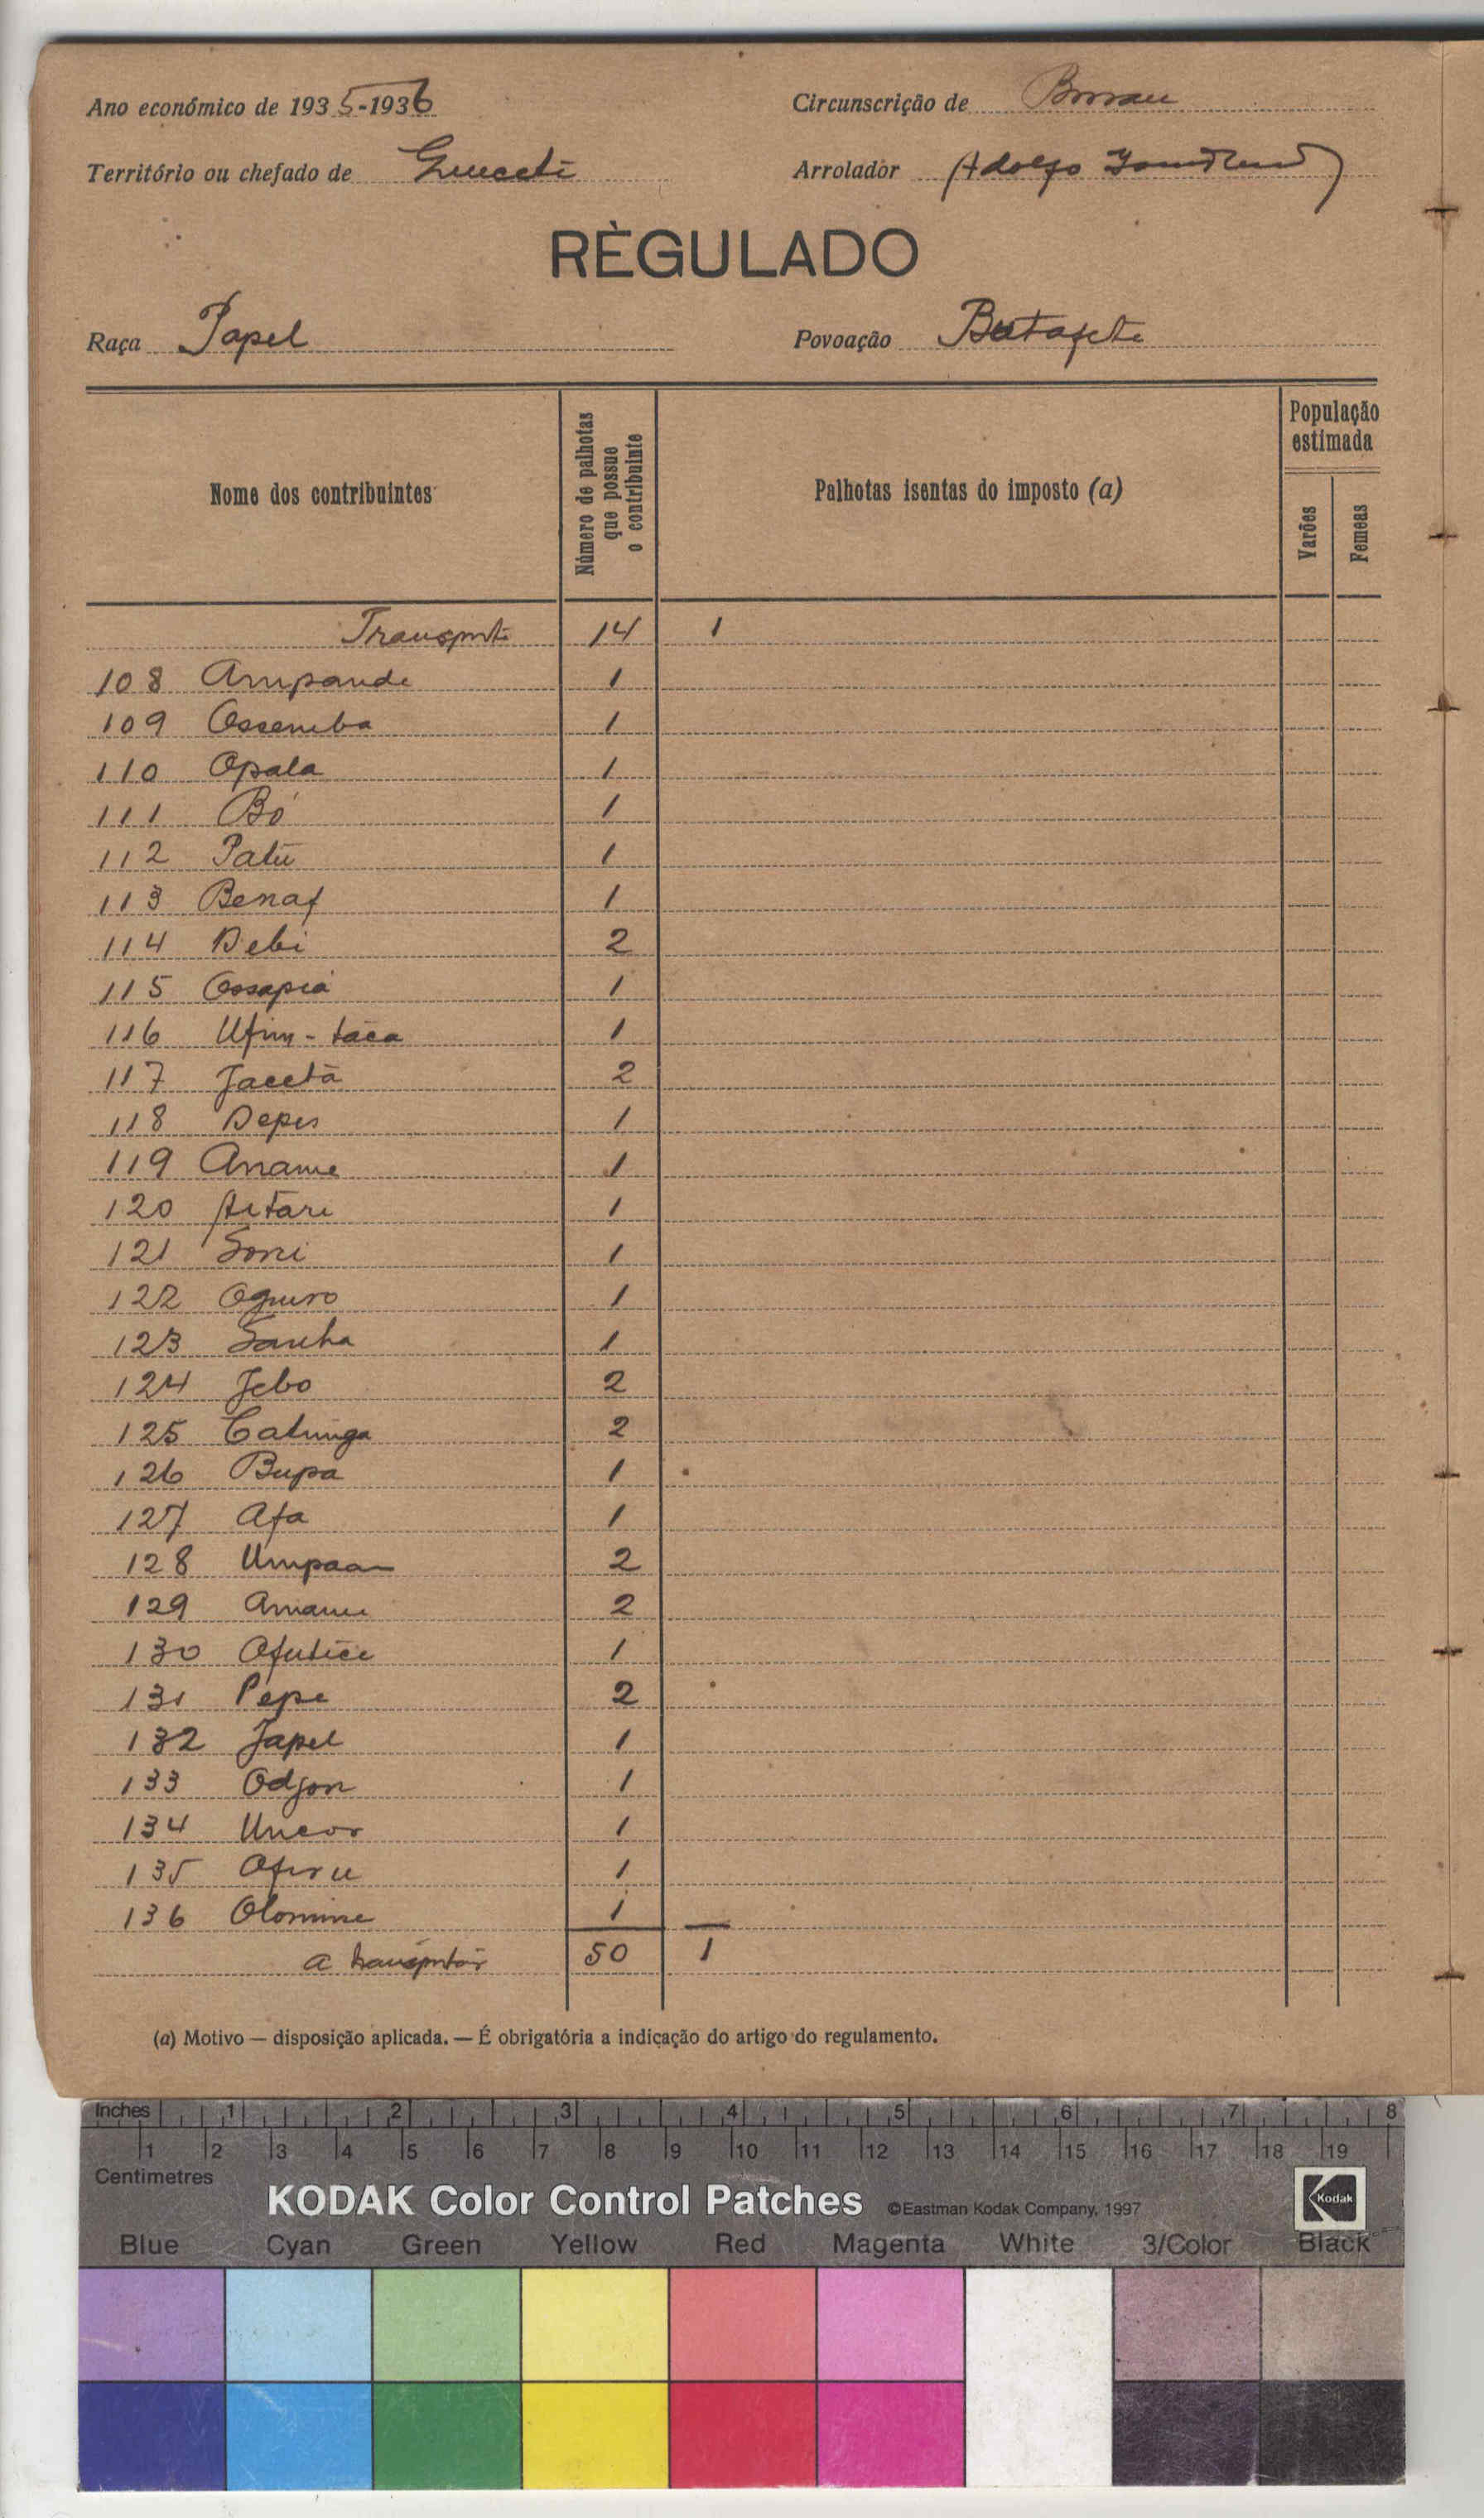 Ano económico de 1935-1936
Circunscrição de Bissau
Território ou chefado de
Arrolador Adolfo
RÈGULADO
Raça Papel
Povoação Batafete
Nome dos contribuintes
Número de palhotas que possue o contribuinte
Palhotas isentas do imposto (a)
População estimada
Varões
Femeas
Transporte 14 1
108 Ampande 1
109 Ossemba 1
110 Opala 1
111 Bó 1
112 Patú 1
113 Benaf 1
114 Debi 2
115 Ossapiá 1
116 Ufim-taca 1
117 Jacetà 2
118 Depis 1
119 Aname 1
120 Aitari 1
121 Soni 1
122 Oguro 1
123 Sanha 1
124 Jebo 2
125 Catunga 2
126 Bupa 1
127 Afa 1
128 Umpaan 2
129 2
130 Afutice 1
131 Pepe 2
132 Japel 1
133 Odjon 1
134 Uncor 1
135 1
136 Olomine 1
a transportar 50 1
(a) Motivo — disposição aplicada. — É obrigatória a indicação do artigo do regulamento.
Inches 1 2 3 4 5 6 7 8
1 2 3 4 5 6 7 8 9 10 11 12 13 14 15 16 17 18 19
Centimetres
KODAK Color Control Patches ©Eastman Kodak Company, 1997 Kodak
Blue Cyan Green Yellow Red Magenta White 3/Color Black